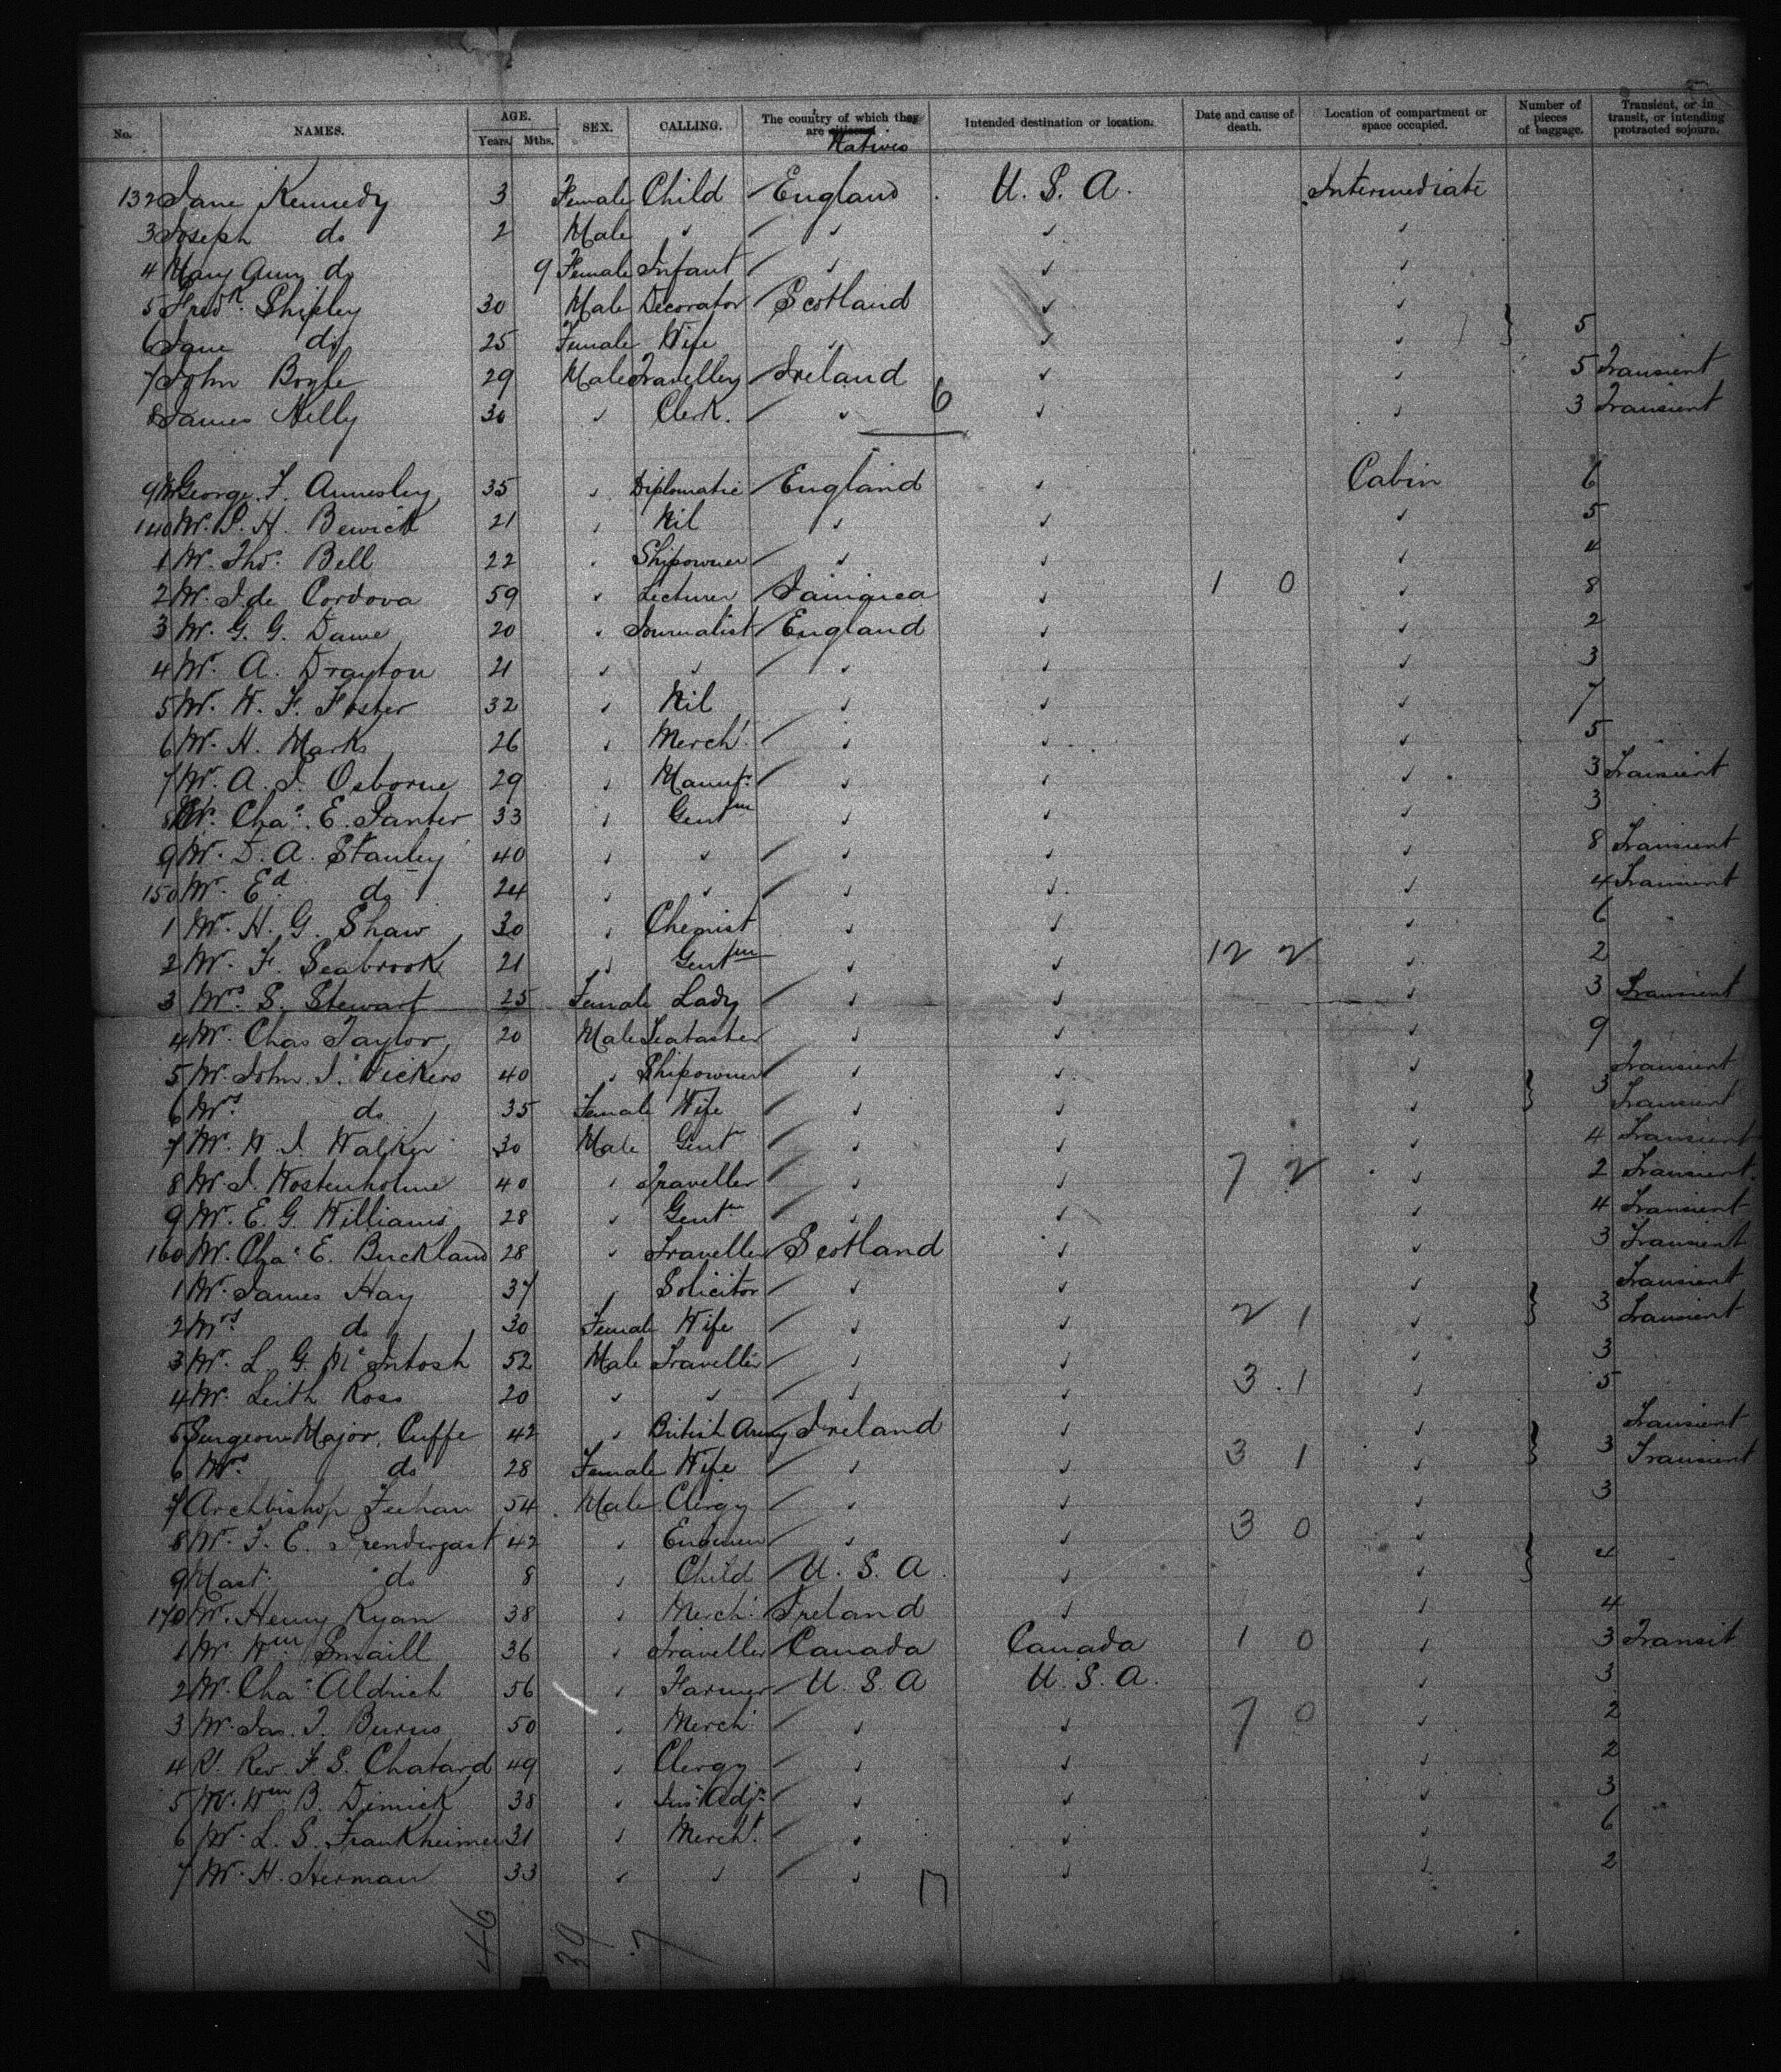 No. NAMES. AGE. Years. Mths. SEX. CALLING. The country of which they are citizens Natives Intended destination or location. Date and cause of death. Location of compartment or space occupied. Number of pieces of baggage. Transient, or in transit, or intending protracted sojourn.
132 Jane Kennedy 3 Female Child England U. S. A. Intermediate
3 Joseph do 2 Male ✓ ✓ ✓ ✓
4 Mary Ann do 9 Female Infant ✓ ✓ ✓
5 Fredk. Shipley 30 Male Decorator Scotland ✓ ✓
6 Jane do 25 Female Wife ✓ ✓ ✓ } 5
7 John Bogle 29 Male Traveller Ireland ✓ ✓ 5 Transient
8 James Kelly 30 ✓ Clerk. ✓ 6 ✓ ✓ 3 Transient
9 Mr George F. Annesley 35 ✓ Diplomatic England ✓ Cabin 6
140 Mr. H. Bewick 21 ✓ Nil ✓ ✓ ✓ 5
1 Mr. Thos. Bell 22 ✓ Shipowner ✓ ✓ ✓ 4
2 Mr. J. de Cordova 59 ✓ Lecturer Jamaica ✓ 1 0 ✓ 8
3 Mr. G. G. Dawe 20 ✓ Journalist England ✓ ✓ 2
4 Mr. A. Drayton 21 ✓ ✓ ✓ ✓ ✓ 3
5 Mr. W. F. Foster 32 ✓ Nil ✓ ✓ ✓ 7
6 Mr. H. Marks 26 ✓ Mercht. ✓ ✓ ✓ 5
7 Mr. A. J. Osborne 29 ✓ Manufr. ✓ ✓ ✓ 3 Transient
8 Mr. Chas. E. Santer 33 ✓ Gentm ✓ ✓ 3
9 Mr. D. A. Stanley 40 ✓ ✓ ✓ ✓ ✓ 8 Transient
150 Mr. Ed. do 24 ✓ ✓ ✓ ✓ ✓ 4 Transient
1 Mr. H. G. Shaw 30 ✓ Chemist ✓ ✓ ✓ 6
2 Mr. F. Seabrook 21 ✓ Gentm ✓ ✓ 12 2 ✓ 2
3 Mrs S. Stewart 25 Female Lady ✓ ✓ ✓ 3 Transient
4 Mr. Chas Taylor 20 Male Teataster ✓ ✓ ✓ 9
5 Mr. John J. Vickers 40 ✓ Shipowner ✓ ✓ ✓ Transient
6 Mrs. do 35 Female Wife ✓ ✓ ✓ } 3 Transient
7 Mr. W. J. Walker 30 Male Gent ✓ ✓ ✓ 4 Transient
8 Mr. J. Wostenholme 40 ✓ Traveller ✓ ✓ 7 2 ✓ 2 Transient
9 Mr. E. G. Williams 28 ✓ Gentm ✓ ✓ 4 Transient
160 Mr. Chas. E. Buckland 28 ✓ Traveller Scotland ✓ ✓ 3 Transient
1 Mr. James Hay 37 ✓ Solicitor ✓ ✓ ✓ Transient
2 Mrs. do 30 Female Wife ✓ ✓ 2 1 ✓ } 3 Transient
3 Mr. L. G. McIntosh 52 Male Traveller ✓ ✓ ✓ 3
4 Mr. Leith Ross 20 ✓ ✓ ✓ ✓ 3 . 1 ✓ 5
5 Surgeon Major Cuffe 42 ✓ British Army Ireland ✓ ✓ Transient
6 Mrs. do 28 Female Wife ✓ ✓ 3 1 ✓ } 3 Transient
7 Archbishop Feehan 54 Male Clergy ✓ ✓ 3
8 Mr. F. E. Prendergast 42 ✓ Engineer ✓ ✓ 3 0 ✓
9 Mast. do 8 ✓ Child U. S. A. ✓ } 4
170 Mr. Henry Ryan 38 ✓ Mercht. Ireland ✓ ✓ 4
1 Mr. Wm. Smaill 36 ✓ Traveller Canada Canada 1 0 ✓ 3 Transit
2 Mr. Chas. Aldrich 56 ✓ Farmer U. S. A U. S. A. ✓ 3
3 Mr. Jas. T. Burns 50 ✓ Mercht. ✓ ✓ 7 0 ✓ 2
4 Rt. Rev. F. S. Chatard 49 ✓ Clergy ✓ ✓ ✓ 2
5 Mr. Wm B. Dimick 38 ✓ Ins. Adjr. ✓ ✓ ✓ 3
6 Mr. L. S. Frankheimer 31 ✓ Mercht. ✓ ✓ ✓ 6
7 Mr. H. Herman 33 ✓ ✓ ✓ 17 ✓ ✓ 2
46 39 7